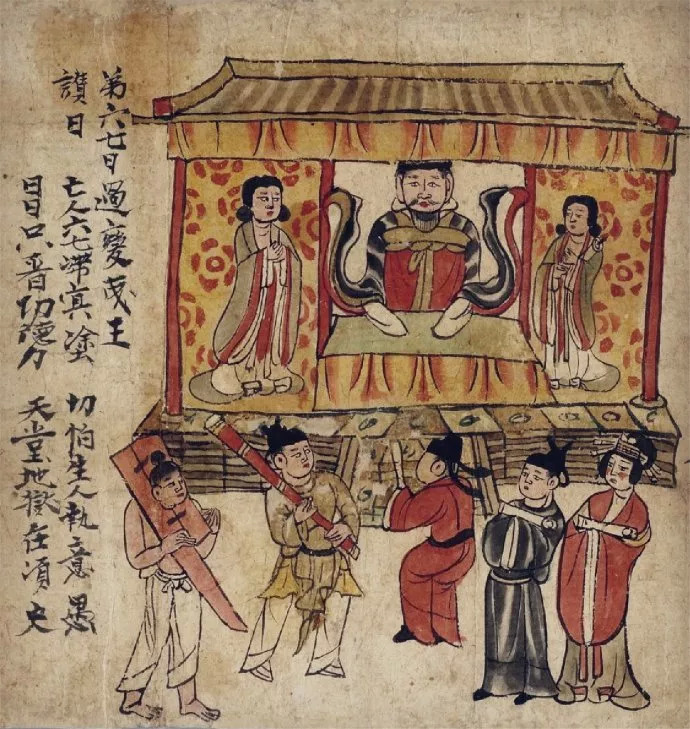 第六七日過變成王
讃曰 亡人六七滯冥塗 切怕生人執意愚
日日只看功德力 天堂地獄在湏臾